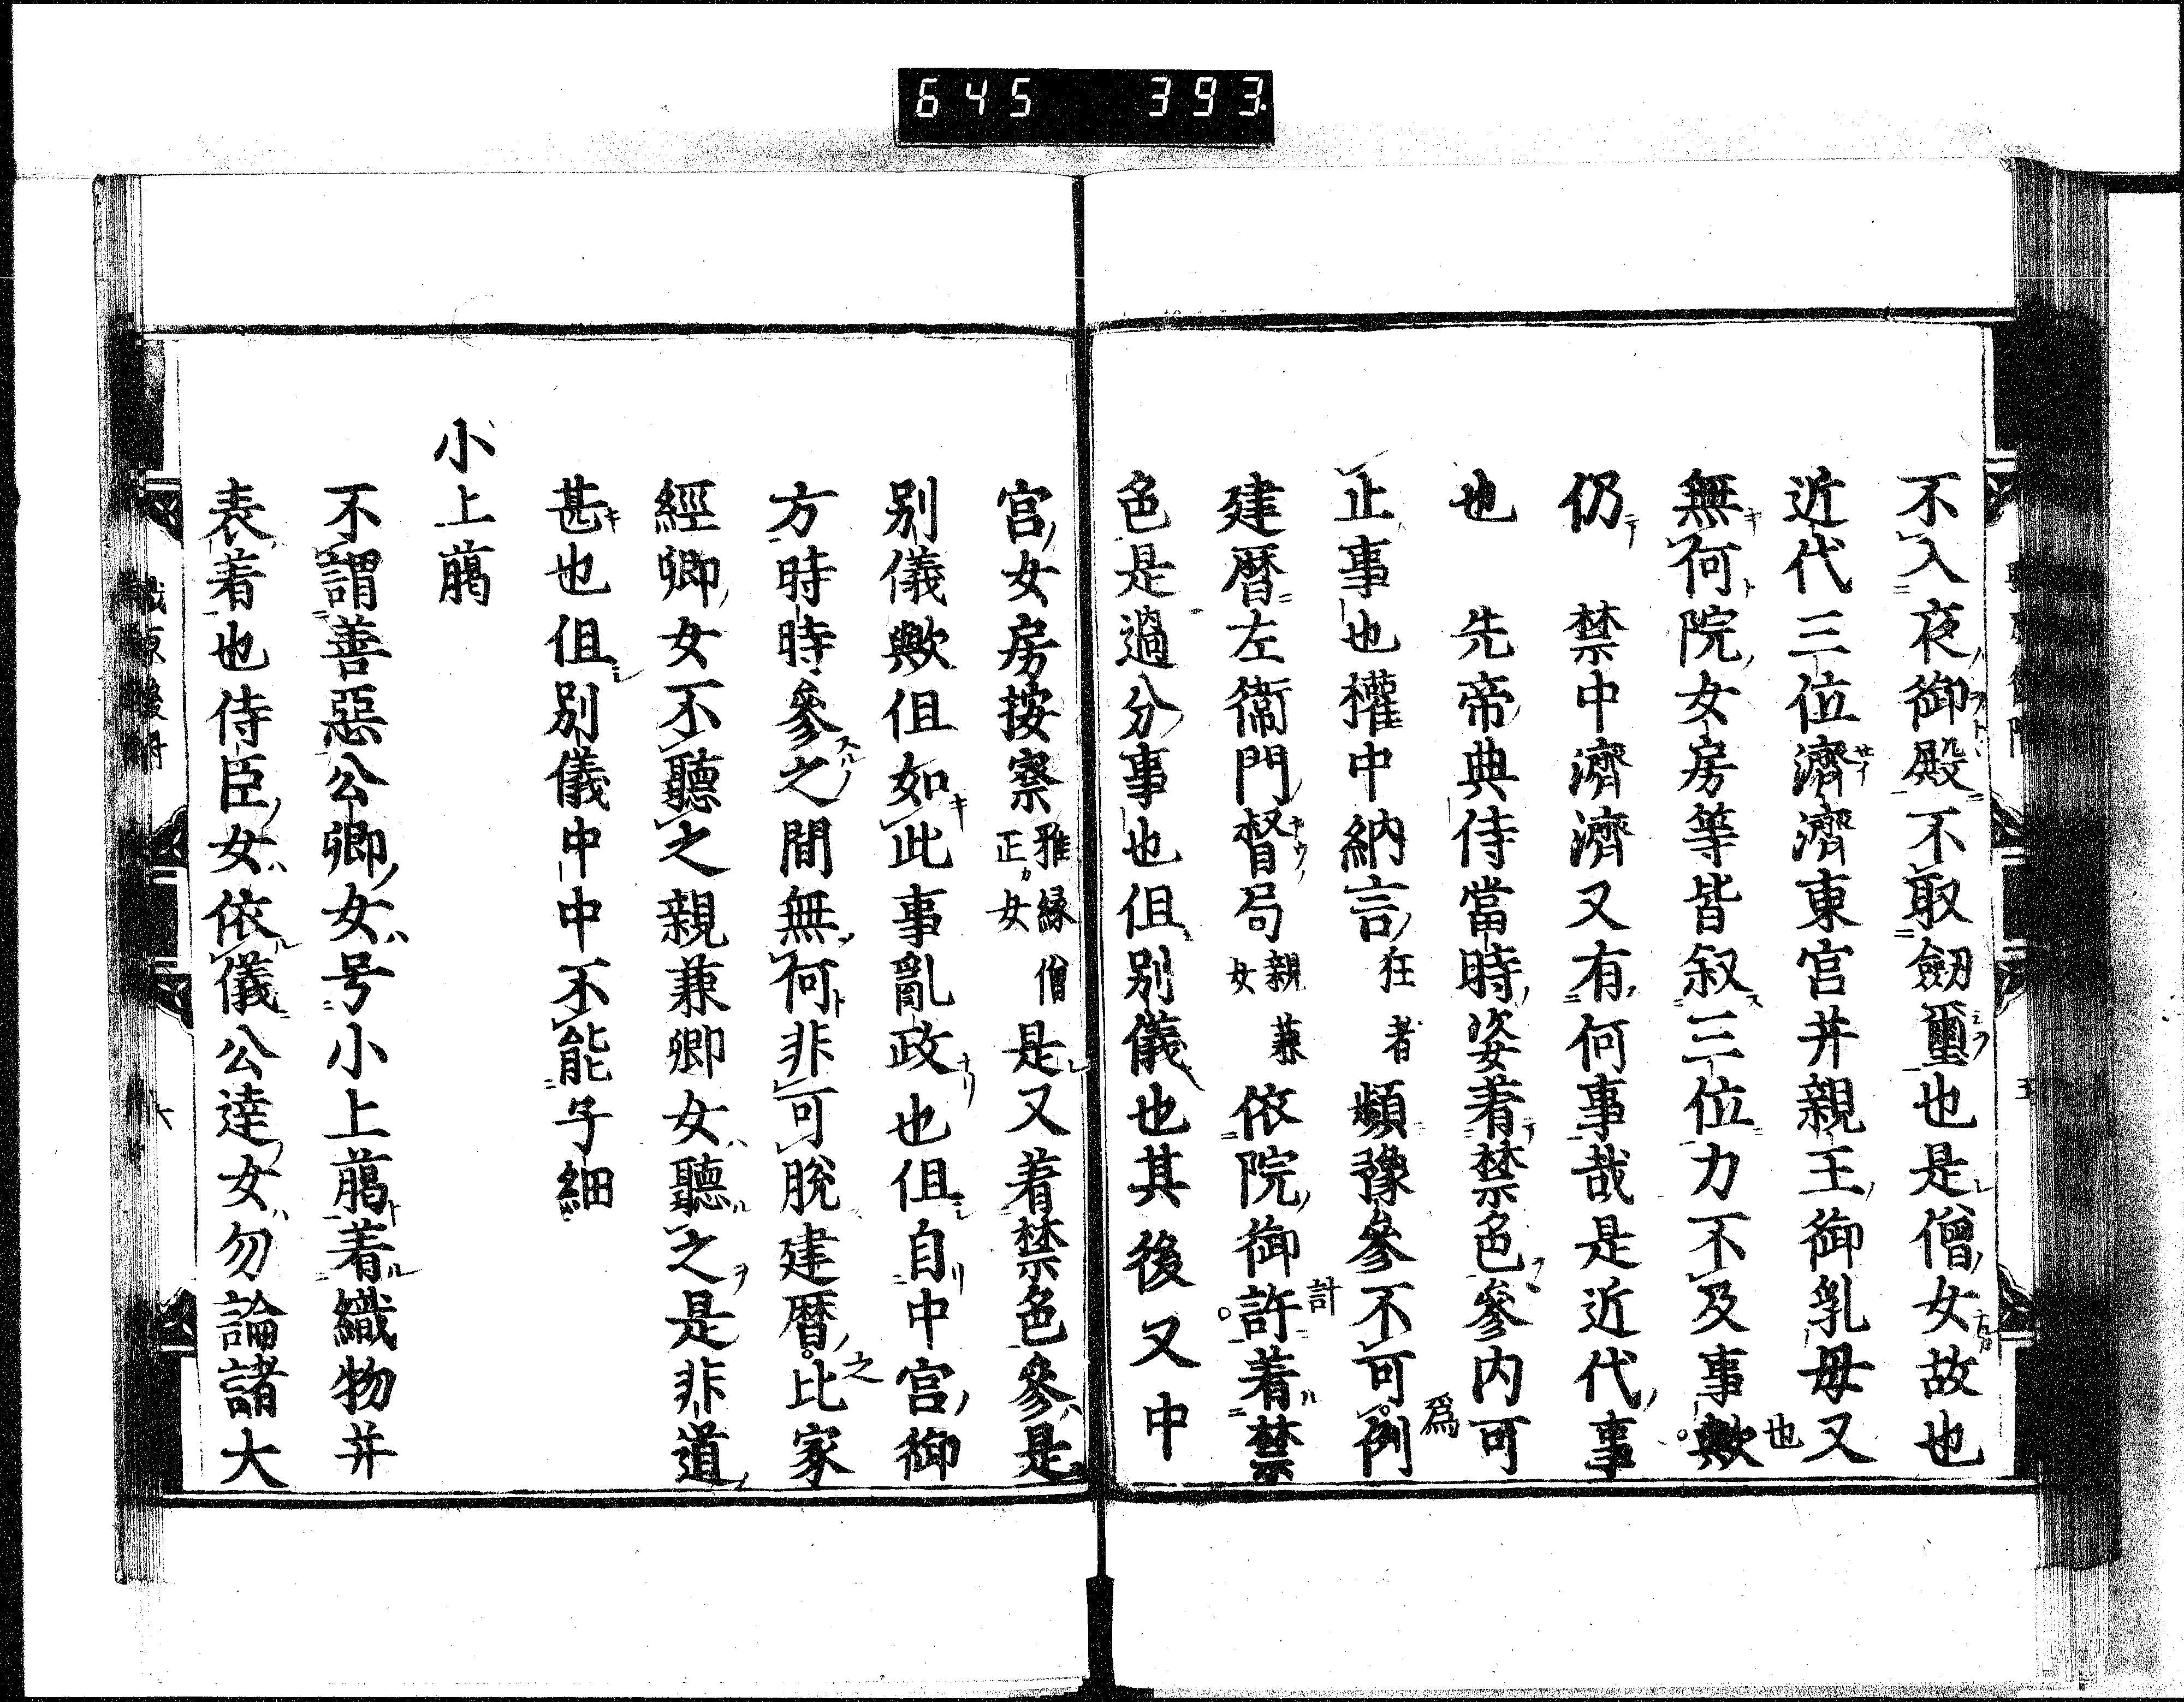 645 393
不入夜御殿不取劔璽也是僧女故也
近代三位濟濟東宮并親王御乳母又
無何院女房等皆叙三位力不及事歟也
仍 禁中濟濟又有何事哉是近代事
也 先帝典侍當時姿着禁色參内可爲
止事也權中納言狂者頻豫參不可例
建暦左衞門督局親兼女依院御許計着禁
色是過分事也但別儀也其後又中
宮女房按察雅縁僧正女是又着禁色參是
別儀歟但如此事亂政也但自中宮御
方時時參之間無何非可脱建暦之比家
經卿女不聽之親兼卿女聽之是非道
甚也但別儀中中不能子細
小上﨟
不謂善惡公卿女号小上﨟着織物并
表着也侍臣女依儀公達女勿論諸大